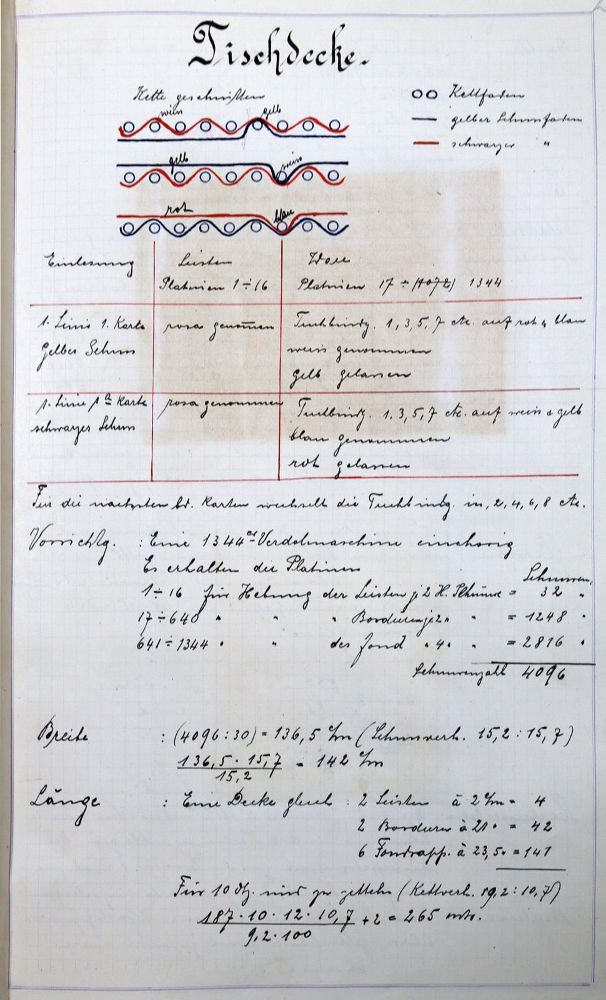 Tischdecke.
Kette geschnitten
weiss gelb
Kettfaden
gelber Schussfaden
schwarzer "
gelb weiss
rot blau
Einlesung Leisten Ware
Platinen 1÷16 Platinen 17÷(1072) 1344
1. Linie 1. Karte rosa genommen Tuchbindg. 1, 3, 5, 7 etc. auf rot u. blau
Gelber Schuss weiss genommen
gelb gelassen
1. Linie 1a Karte rosa genommen Tuchbindg. 1. 3. 5, 7 etc. auf weiss u gelb
schwarzer Schuss blau genommen
rot gelassen
Für die nächsten Karten wechselt die Tuchbindg. in, 2, 4, 6, 8 etc.
Vorrichtg. : Eine 1344er Verdolmaschine einchorig
Es erhalten die Platinen Schnuren.
1÷16 für Hebung der Leisten je 2 = 32 "
17÷640 " " " Bordüren je 2 " " = 1248 "
641÷1344 " " des fond " 4 " " = 2816 "
Schnurenzahl 4096
Breite : (4096 : 30) = 136,5 c/m (Schussverh. 15,2 : 15,7)
136,5 · 15,7 / 15,2 = 142 c/m
Länge : Eine Decke gleich : 2 Leisten à 2 c/m = 4
2 Bordüren à 21 " = 42
6 Fondrapp. à 23,5 " = 141
Für 10 Dtz. sind zu zetteln (Kettverh. 9,2 : 10,7)
187 · 10 · 12 · 10,7 / 9,2 · 100 + 2 = 265 mtr.